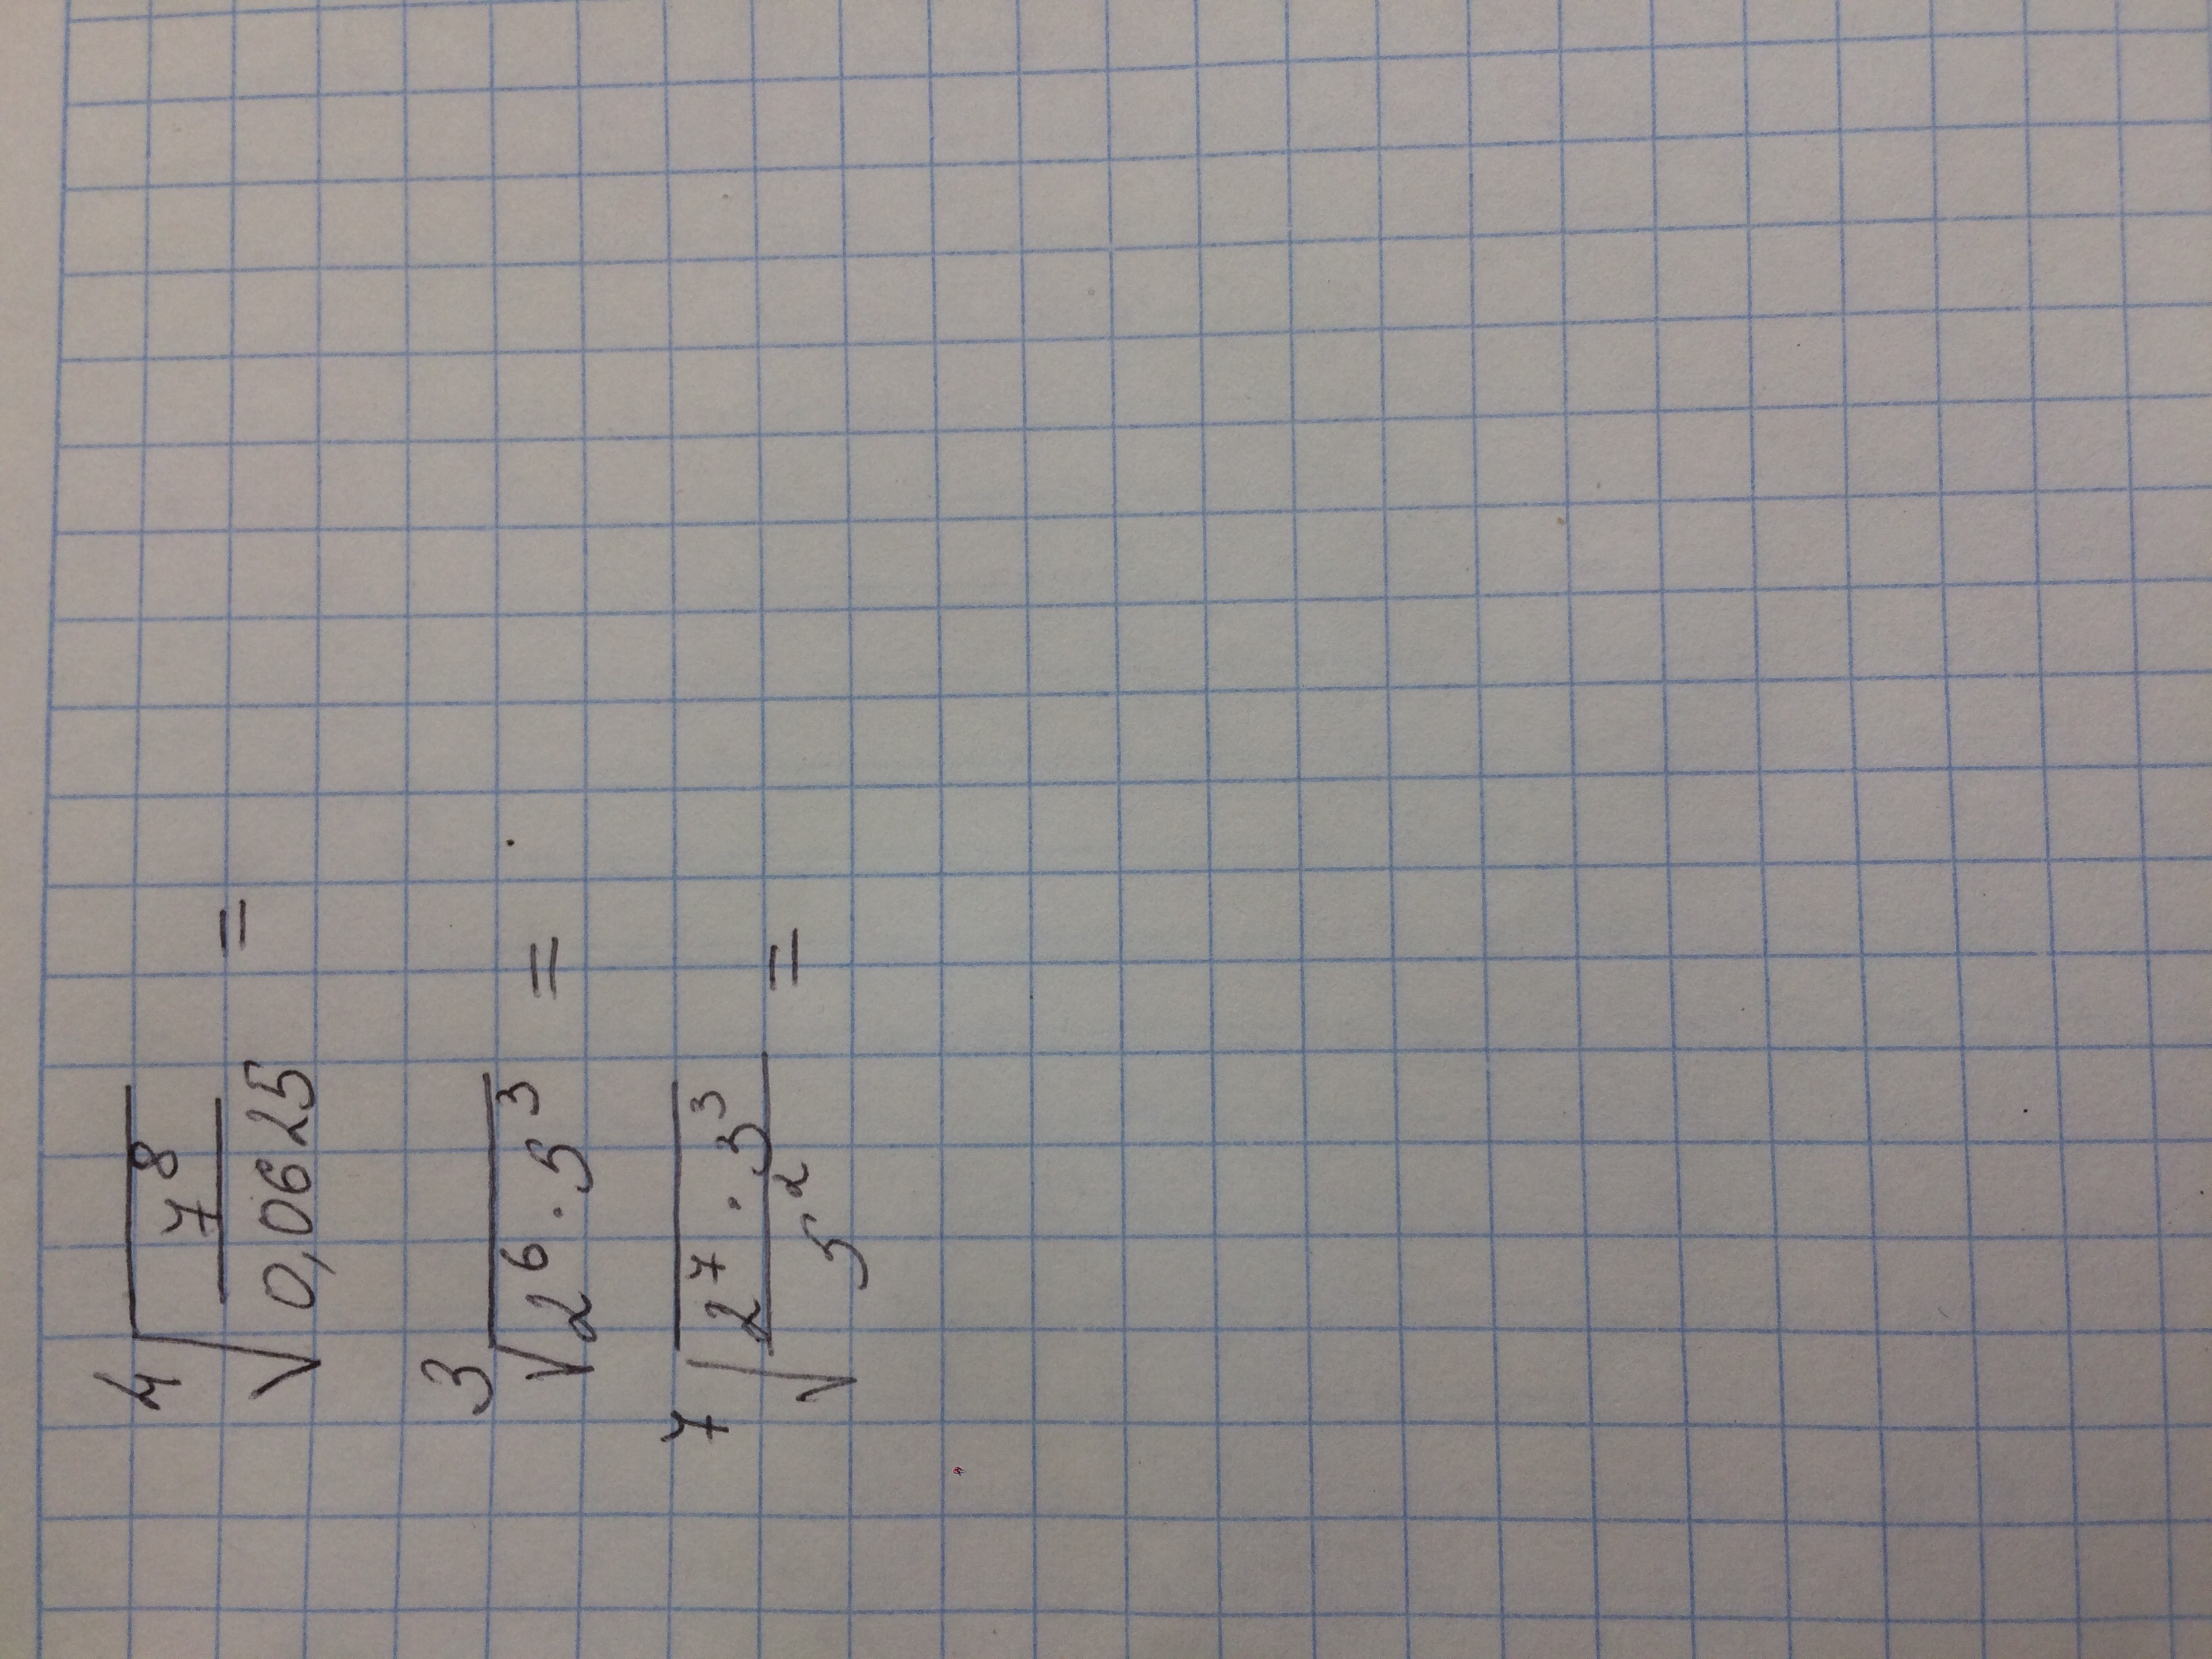 ⁴√(7⁸/0,0625) =
³√(2⁶·5³) =
⁷√(2⁷·3³/5²) =